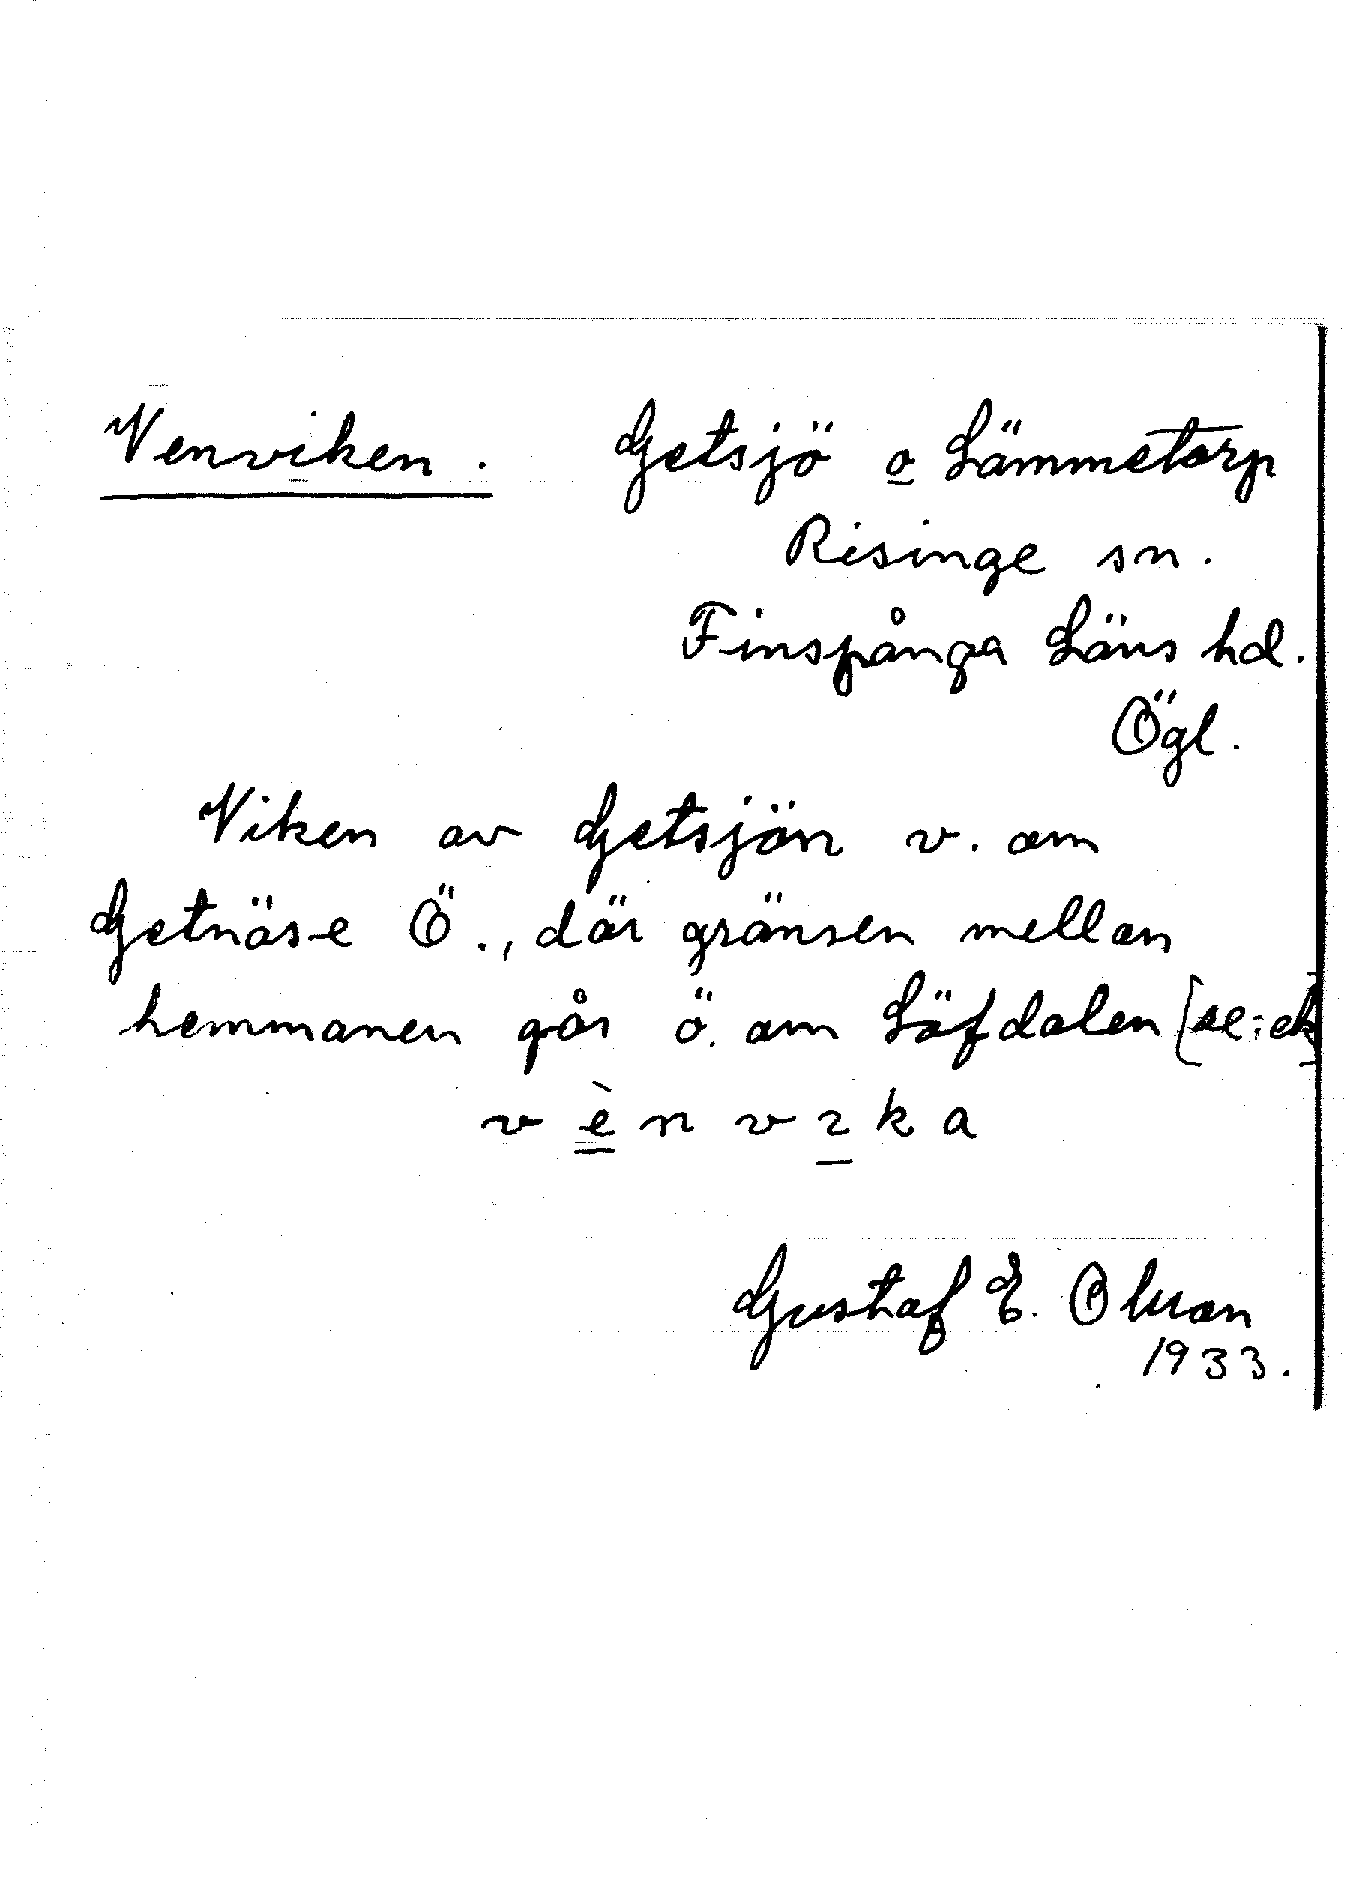 Venviken. Getsjö o Lämmetorp
Risinge sn.
Finspånga Läns hd.
Ögl.
Viken av Getsjön v. om
Getnäs-e Ö., där gränsen mellan
hemmanen går ö. om Löfdalen [se: ek]
v è n v ɪ k a
Gustaf E. Olsson
1933.